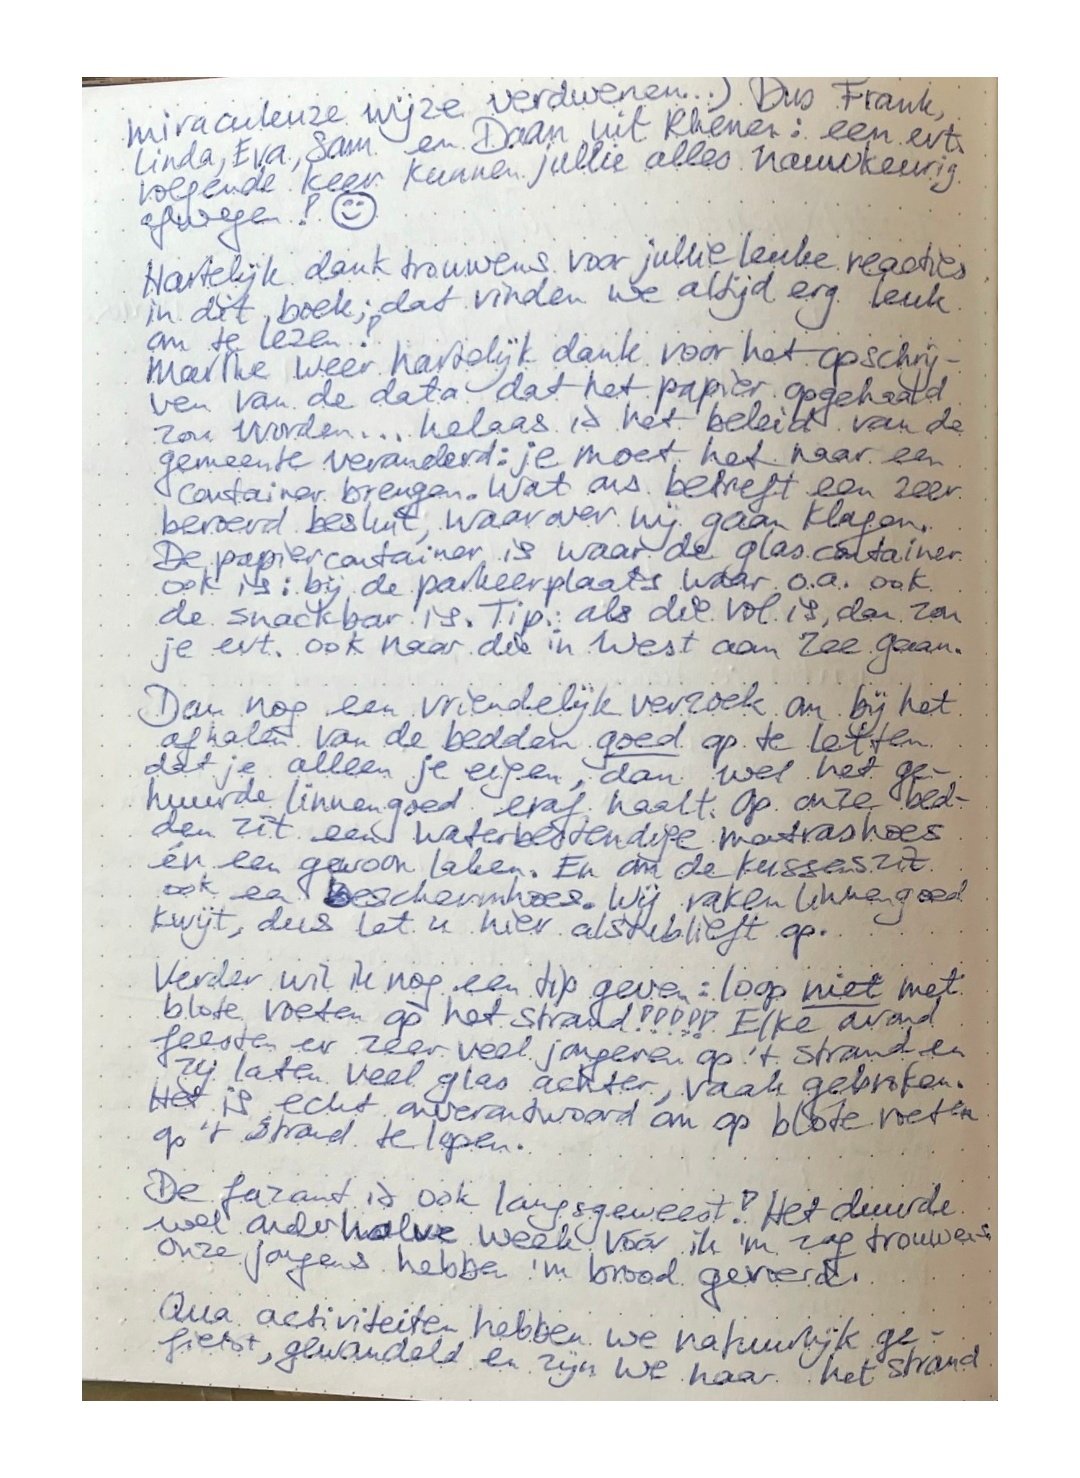 miraculeuze wijze verdwenen...) Dus Frank,
Linda, Eva, Sam en Daan uit Rhenen: een evt.
volgende keer kunnen jullie alles nauwkeurig
afwegen! ☺
Hartelijk dank trouwens voor jullie leuke reacties
in dit boek; dat vinden we altijd erg leuk
om te lezen!
Marthe weer hartelijk dank voor het opschrij-
ven van de data dat het papier opgehaald
zou worden... helaas is het beleid van de
gemeente veranderd: je moet het naar een
container brengen. Wat ons betreft een zeer
beroerd besluit, waarover wij gaan klagen.
De papiercontainer is waar de glascontainer
ook is: bij de parkeerplaats waar o.a. ook
de snackbar is. Tip: als die vol is, dan zou
je evt. ook naar die in West aan Zee gaan.
Dan nog een vriendelijk verzoek om bij het
afhalen van de bedden goed op te letten
dat je alleen je eigen, dan wel het ge-
huurde linnengoed eraf haalt. Op onze bed-
den zit een waterbestendige matrashoes
én een gewoon laken. En om de kussens zit
ook een beschermhoes. Wij raken linnengoed
kwijt, dus let u hier alstublieft op.
Verder wil ik nog een tip geven: loop niet met
blote voeten op het strand!!!!! Elke avond
feesten er zeer veel jongeren op 't strand en
zij laten veel glas achter, vaak gebroken.
Het is echt onverantwoord om op blote voeten
op 't strand te lopen.
De fazant is ook langsgeweest! Het duurde
wel anderhalve week vóór ik 'm zag trouwens
Onze jongens hebben 'm brood gevoerd.
Qua activiteiten hebben we natuurlijk ge-
fietst, gewandeld en zijn we naar het strand